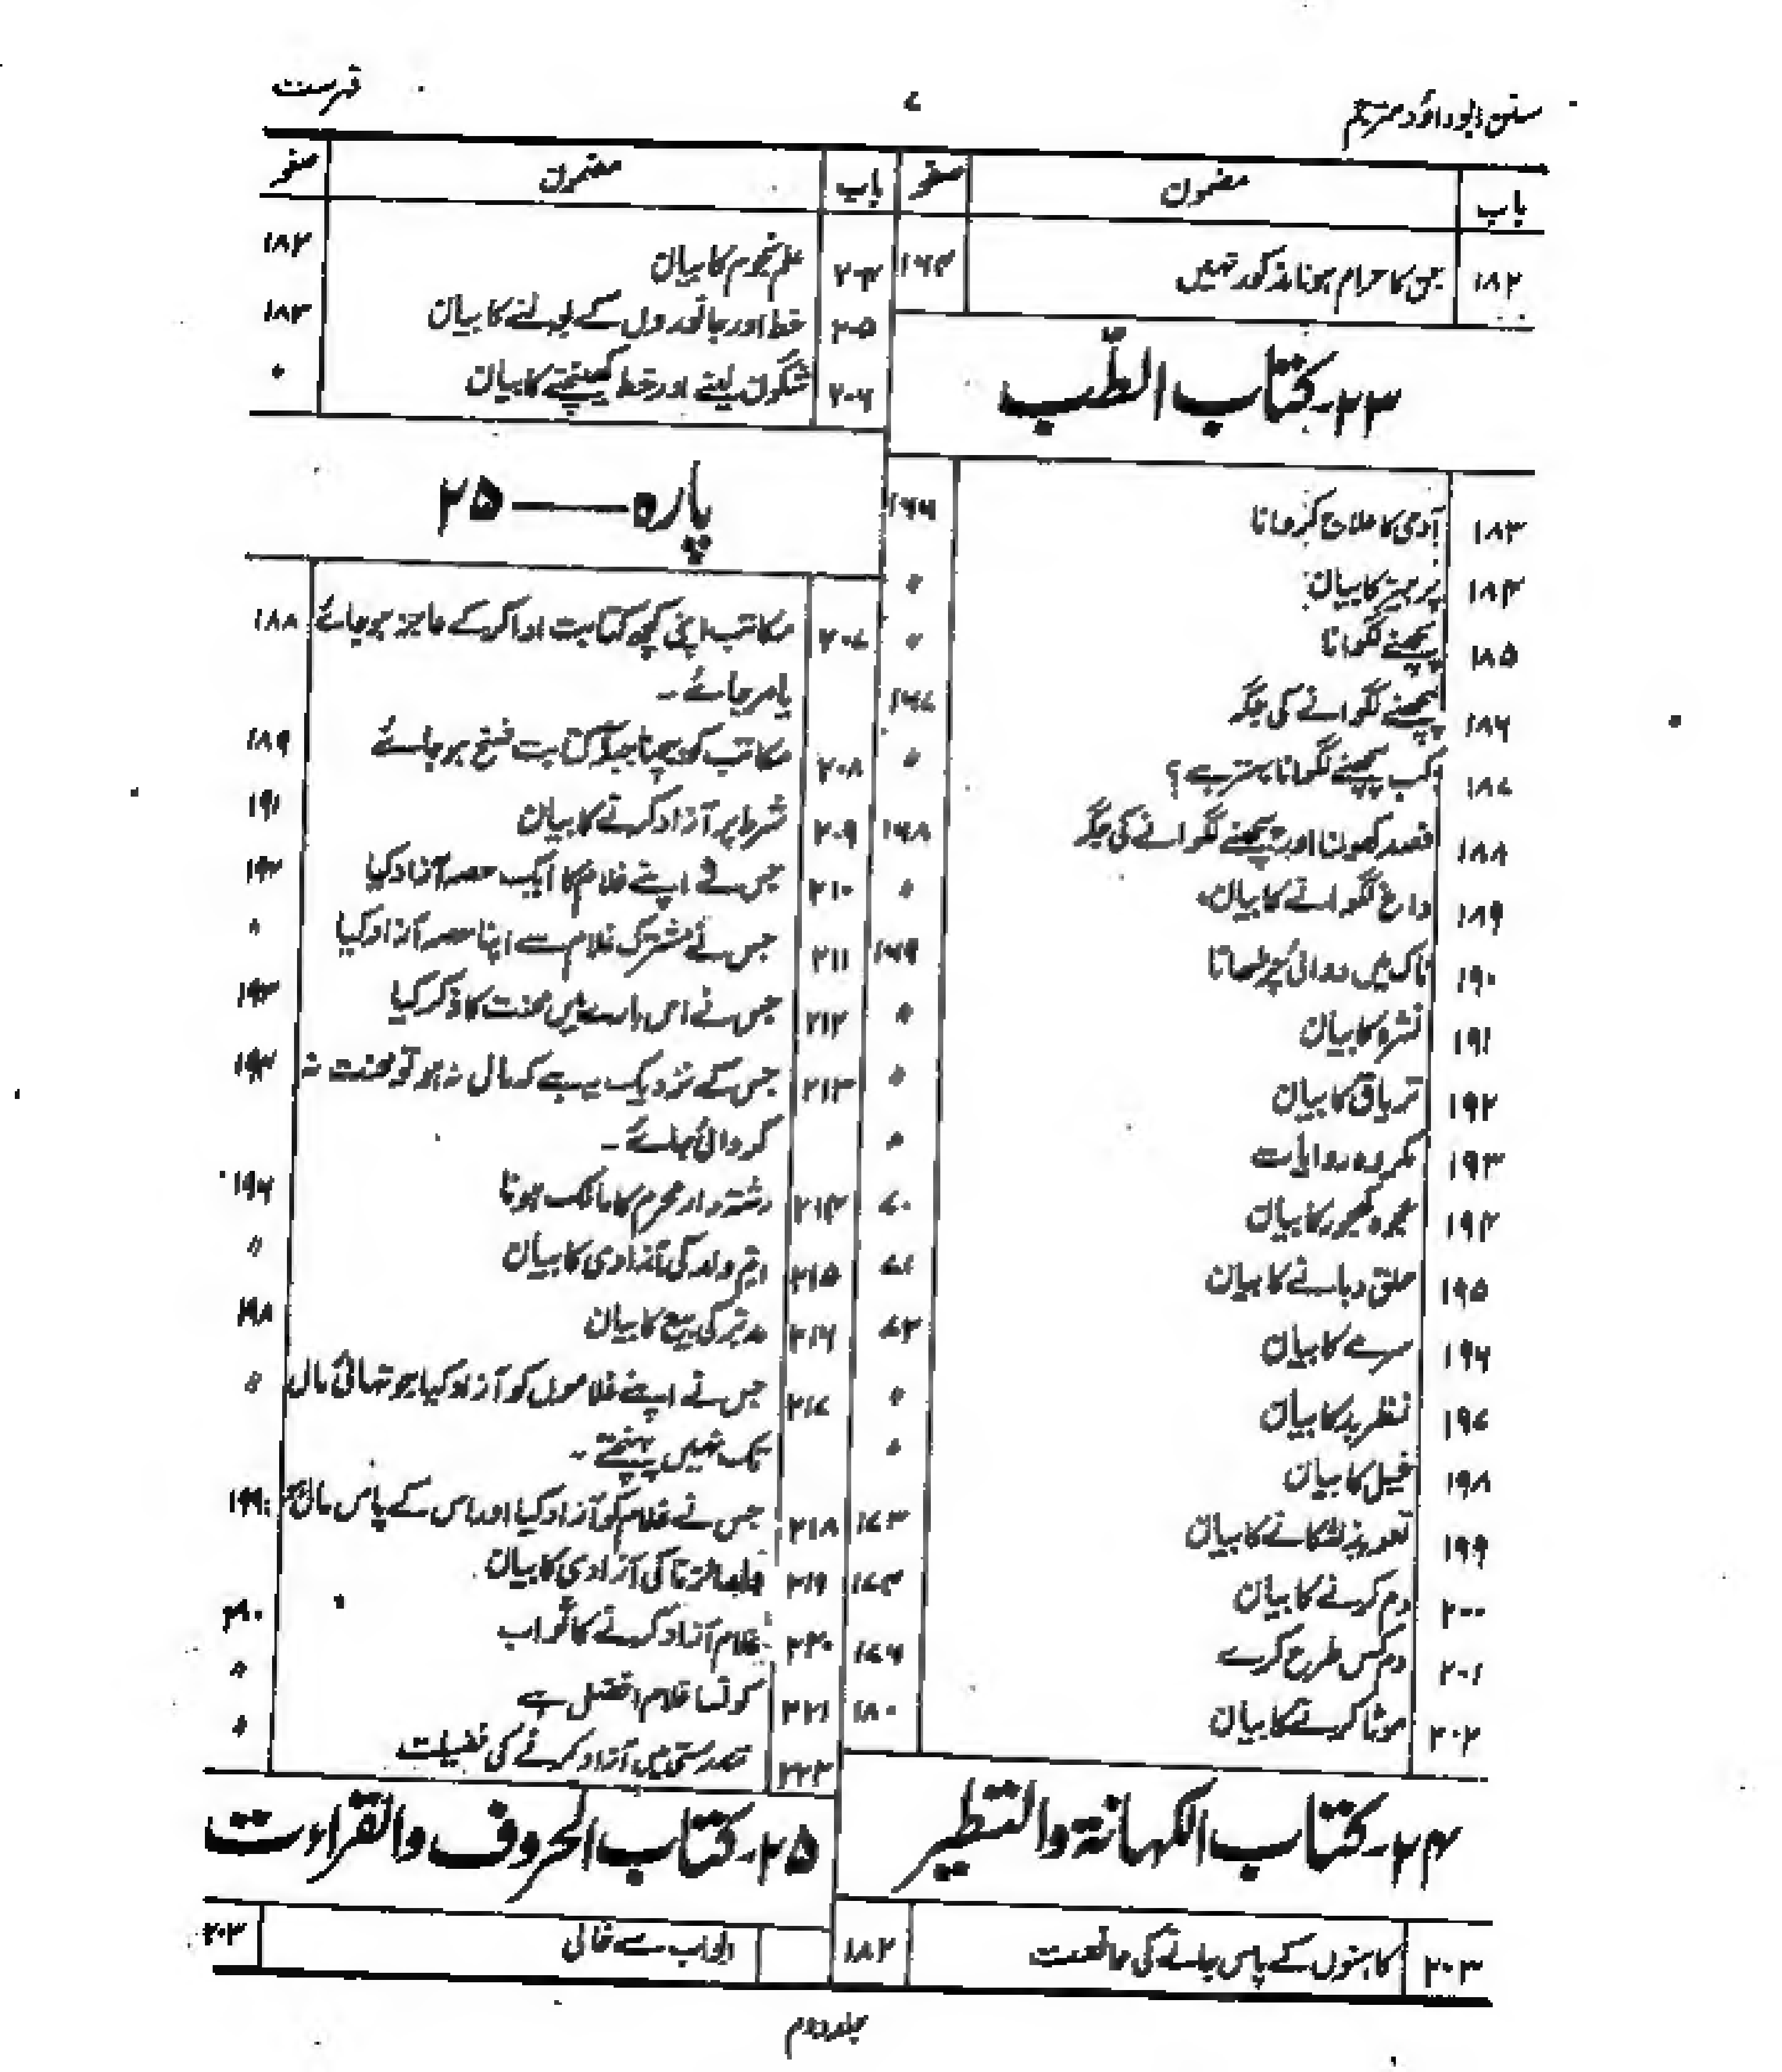 سنن ابوداؤد مترجم ۷ فہرست
باب مضمون صفحہ
۱۸۲ جس کا حرام ہونا مذکور نہیں ۱۶۴
۲۳۔ کتاب الطّب
۱۸۳ آدمی کا علاج کروانا ۱۶۶
۱۸۴ پرہیز کا بیان 〃
۱۸۵ پچھنے لگوانا 〃
۱۸۶ پچھنے لگوانے کی جگہ ۱۶۷
۱۸۷ کب پچھنے لگوانا بہتر ہے؟ 〃
۱۸۸ فصد کھولنا اور پچھنے لگوانے کی جگہ ۱۶۸
۱۸۹ داغ لگوانے کا بیان 〃
۱۹۰ ناک میں دوائی چڑھانا ۱۶۹
۱۹۱ نشرہ کا بیان 〃
۱۹۲ تریاق کا بیان 〃
۱۹۳ مکروہ دوایات 〃
۱۹۴ عجوہ کھجور کا بیان ۷۰
۱۹۵ حلق دبانے کا بیان ۷۱
۱۹۶ سرمے کا بیان ۷۲
۱۹۷ نظرِ بد کا بیان 〃
۱۹۸ غیل کا بیان 〃
۱۹۹ تعویذ لٹکانے کا بیان ۱۷۳
۲۰۰ دم کرنے کا بیان ۱۷۴
۲۰۱ دم کس طرح کرے ۱۷۶
۲۰۲ موٹا کرنے کا بیان ۱۸۰
۲۴۔ کتاب الکہانۃ والتطیر
۲۰۳ کاہنوں کے پاس جانے کی ممانعت ۱۸۲
باب مضمون صفحہ
۲۰۴ علم نجوم کا بیان ۱۸۲
۲۰۵ خط اور جانوروں کے بولنے کا بیان ۱۸۳
۲۰۶ شگون لینے اور خط کھینچنے کا بیان 〃
پارہ —— ۲۵
۲۰۷ مکاتب اپنی کچھ کتابت ادا کر کے عاجز ہو جائے ۱۸۸
یا مر جائے۔
۲۰۸ مکاتب کو بیچنا جبکہ کتابت فسخ ہو جائے ۱۸۹
۲۰۹ شرط پر آزاد کرنے کا بیان ۱۹۱
۲۱۰ جس نے اپنے غلام کا ایک حصہ آزاد کیا ۱۹۲
۲۱۱ جس نے مشترک غلام سے اپنا حصہ آزاد کیا 〃
۲۱۲ جس نے اس بارے میں محنت کا ذکر کیا ۱۹۳
۲۱۳ جس کے نزدیک یہ ہے کہ مال نہ ہو تو محنت نہ ۱۹۴
کروائی جائے۔
۲۱۴ رشتہ دار محرم کا مالک ہونا ۱۹۶
۲۱۵ امّ ولد کی آزادی کا بیان 〃
۲۱۶ مدبّر کی بیع کا بیان ۱۹۸
۲۱۷ جس نے اپنے غلاموں کو آزاد کیا جو تہائی مال 〃
تک نہیں پہنچتے۔
۲۱۸ جس نے غلام کو آزاد کیا اور اس کے پاس مال ۱۹۹
۲۱۹ ولد الزنا کی آزادی کا بیان
۲۲۰ غلام آزاد کرنے کا ثواب ۲۰۰
۲۲۱ کونسا غلام افضل ہے 〃
۲۲۲ تندرستی میں آزاد کرنے کی فضیلت 〃
۲۵۔ کتاب الحروف والقراءت
ابواب سے خالی ۲۰۳
جلد دوم